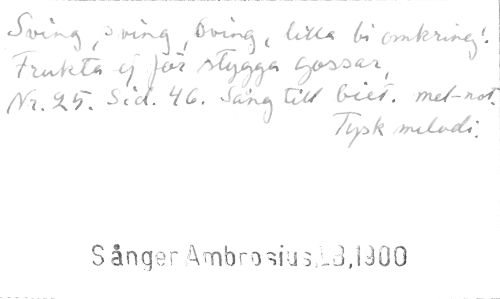 Sving, sving, sving, lilla bi omkring!
Frukta ej för stygga gossar,
Nr. 25. Sid. 46. Sång till biet. mel-not.
Tysk melodi.
Sånger Ambrosius, LB, 1900